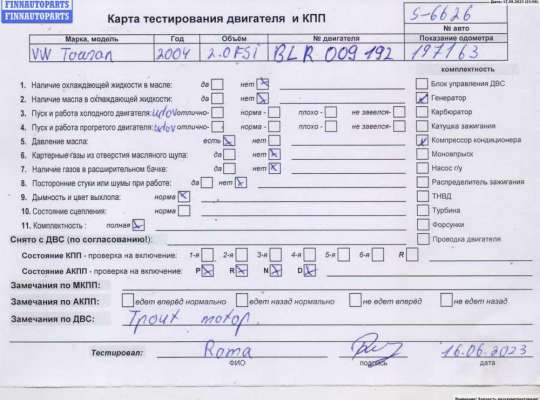 FINNAUTOPARTS
FINNAUTOPARTS
Карта тестирования двигателя и КПП
S-6626
№ авто
Марка, модель Год Объём № двигателя Показание одометра
VW Touran 2004 2.0 FSi BLR 009 192 197163
комплектность
1. Наличие охлаждающей жидкости в масле: да нет Блок управления ДВС
2. Наличие масла в охлаждающей жидкости: да нет Генератор
3. Пуск и работа холодного двигателя: отлично- норма - плохо - не завелся- Карбюратор
4. Пуск и работа прогретого двигателя: отлично- норма - плохо - не завелся- Катушка зажигания
5. Давление масла: есть нет Компрессор кондиционера
6. Картерные газы из отверстия масляного щупа: да нет Моновпрыск
7. Наличие газов в расширительном бачке: да нет Насос г/у
8. Посторонние стуки или шумы при работе: да нет Распределитель зажигания
9. Дымность и цвет выхлопа: норма ТНВД
10. Состояние сцепления: норма Турбина
11. Комплектность : полная Форсунки
Снято с ДВС (по согласованию!): Проводка двигателя
Состояние КПП - проверка на включение: 1-я 2-я 3-я 4-я 5-я 6-я R
Состояние АКПП - проверка на включение: P R N D
Замечания по МКПП:
Замечания по АКПП: едет вперёд нормально едет назад нормально не едет вперёд не едет назад
Замечания по ДВС: Троит мотор.
Тестировал: Roma 16.06.2023
ФИО подпись дата